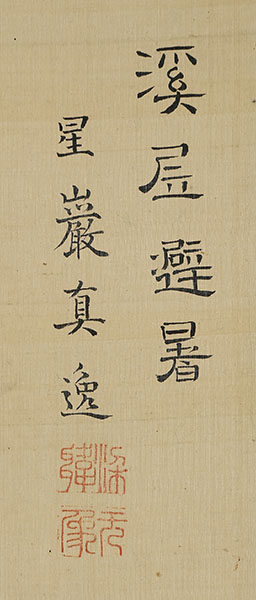 溪居避暑
星巖真逸